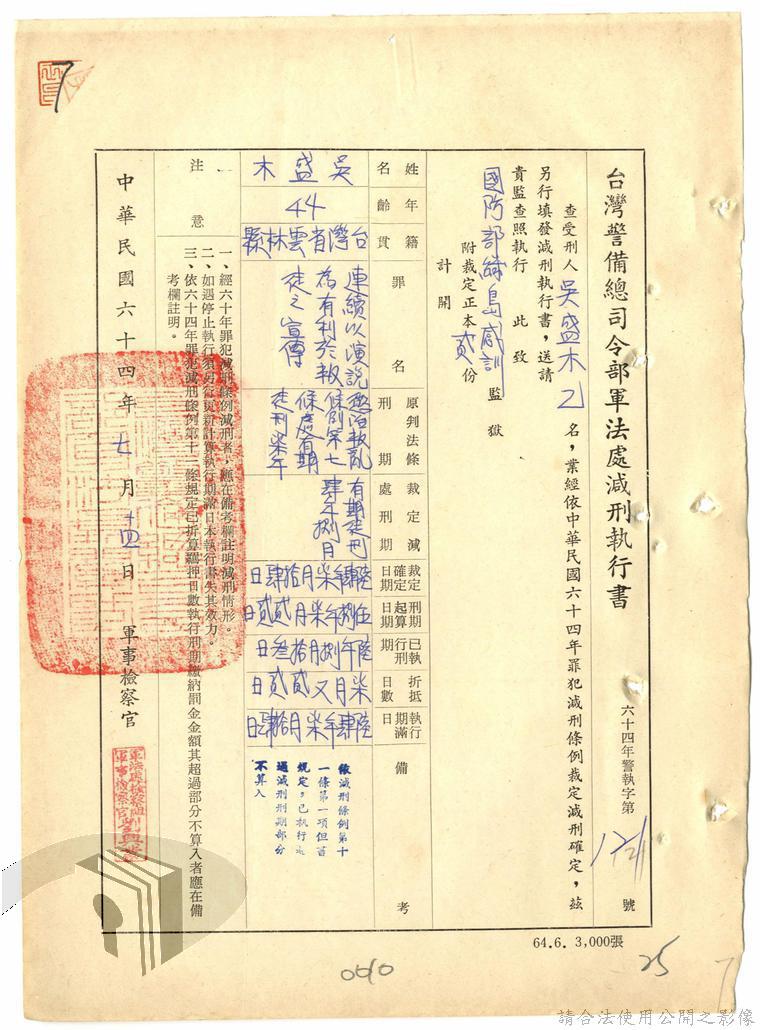 台灣警備總司令部軍法處減刑執行書
六十四年警執字第
號
查受刑人吳盛木乙名，業經依中華民國六十四年罪犯減刑條例裁定減刑確定，茲
另行填發減刑執行書，送請
貴監查照執行 此致
國防部綠島感訓監獄
附裁定正本貳份
計開
姓名 吳盛木
年齡 44
籍貫 台灣省雲林縣
罪名 連續以演說為有利於叛徒之宣傳
原判法條刑期 懲治叛亂條例第七條處有期徒刑柒年
裁定減處刑期 有期徒刑肆年捌月
裁定確定日期 陸肆年柒月拾肆日
刑期起算日期 伍捌年柒月貳貳日
已執行刑期 陸年捌月拾叁日
折抵日數 柒月又貳貳日
執行期滿日期 陸肆年柒月拾肆日
備考
依減刑條例第十
一條第一項但書
規定，已執行逾
過減刑刑期部分
不算入
注意
一、經六十年罪犯減刑條例減刑者，應在備考欄註明減刑情形。
二、如遇停止執行須另行更新計算執行期滿日本執行書失其效力。
三、依六十四年罪犯減刑條例第十三條規定已折算羈押日數執行刑期繳納罰金金額其超過部分不算入者應在備
考欄註明。
中華民國六十四年七月十四日
軍事檢察官
軍法處檢察組
軍事檢察官
64.6. 3,000張
25
7
7
0010
請合法使用公開之影像